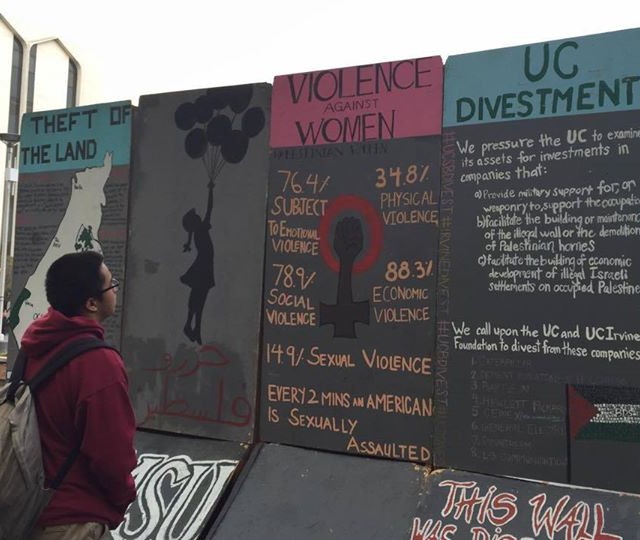 THEFT OF
THE LAND
حررو
فلسطين
VIOLENCE
AGAINST
WOMEN
76.4%
SUBJECT
TO EMOTIONAL
VIOLENCE
34.8%
PHYSICAL
VIOLENCE
78.9%
SOCIAL
VIOLENCE
88.3%
ECONOMIC
VIOLENCE
14.9% SEXUAL VIOLENCE
EVERY 2 MINS AN AMERICAN
IS SEXUALLY
ASSAULTED
UC
DIVESTMENT
We pressure the UC to examine
its assets for investments in
companies that:
a) Provide military support for, or
weaponry to, support the
b) facilitate the building or
of the illegal wall or the
of Palestinian homes
c) facilitate the building of economic
development of illegal Israeli
settlements on occupied Palestine
We call upon the UC and UCIrvine
Foundation to divest from these companies
4. HEWLETT
6. GENERAL
MSU
THIS WALL
WAS